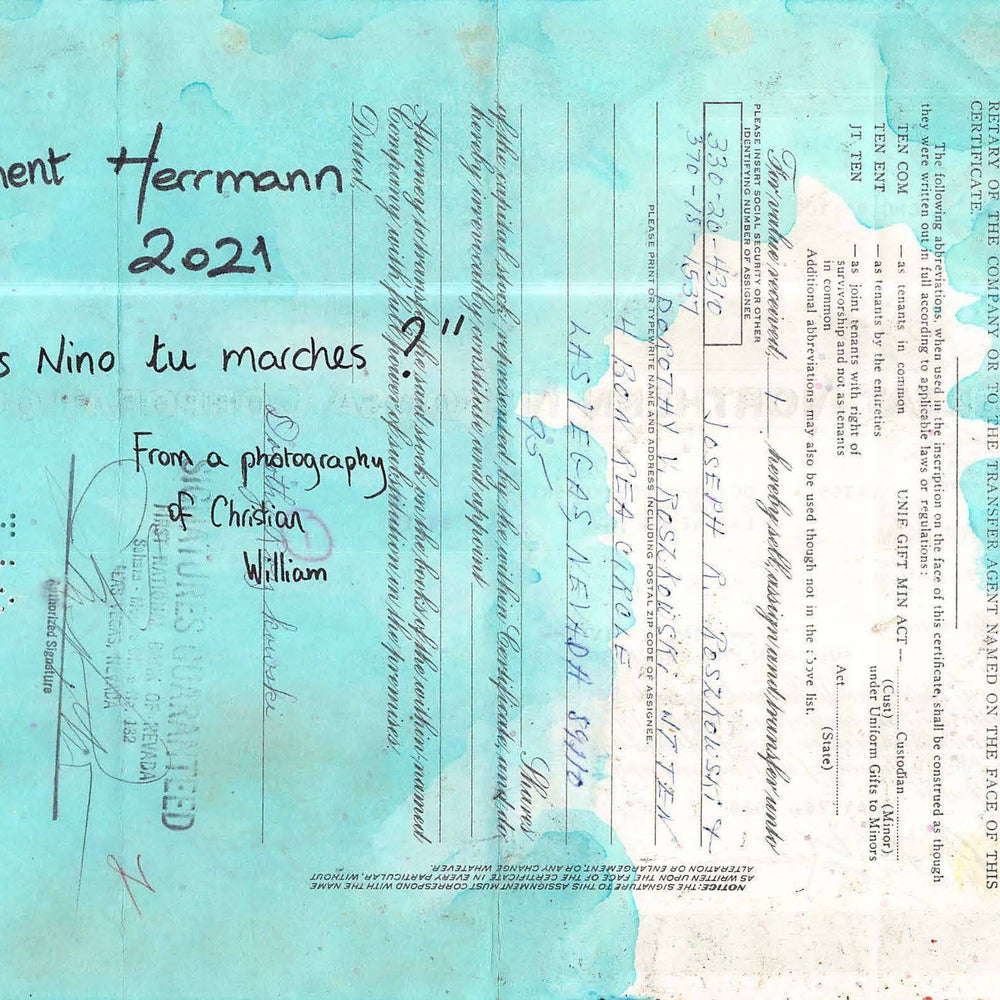 ent Herrmann
2021
s Nino tu marches ?"
From a photography
of Christian
William
RETARY OF THE COMPANY OR TO THE TRANSFER AGENT NAMED ON THE FACE OF THIS
CERTIFICATE.
The following abbreviations, when used in the inscription on the face of this certificate, shall be construed as though
they were written out in full according to applicable laws or regulations:
TEN COM — as tenants in common
TEN ENT — as tenants by the entireties
JT TEN — as joint tenants with right of
survivorship and not as tenants
in common
UNIF GIFT MIN ACT — Custodian
(Cust) (Minor)
under Uniform Gifts to Minors
Act
(State)
Additional abbreviations may also be used though not in the above list.
For value received, I hereby sell, assign and transfer unto
PLEASE INSERT SOCIAL SECURITY OR OTHER
IDENTIFYING NUMBER OF ASSIGNEE
330-20-4310
370-18-1537
JOSEPH R. ROSZKOWSKI &
DOROTHY V. ROSZKOWSKI JT TEN
PLEASE PRINT OR TYPEWRITE NAME AND ADDRESS INCLUDING POSTAL ZIP CODE OF ASSIGNEE.
LAS VEGAS, NEVADA
95 Shares
of the capital stock represented by the within Certificate, and do
hereby irrevocably constitute and appoint
Attorney to transfer the said stock on the books of the within-named
Company with full power of substitution in the premises.
Dated,
SIGNATURES GUARANTEED
FIRST NATIONAL BANK OF NEVADA
LAS VEGAS, NEVADA
Authorized Signature
NOTICE: THE SIGNATURE TO THIS ASSIGNMENT MUST CORRESPOND WITH THE NAME
AS WRITTEN UPON THE FACE OF THE CERTIFICATE IN EVERY PARTICULAR, WITHOUT
ALTERATION OR ENLARGEMENT, OR ANY CHANGE WHATEVER.